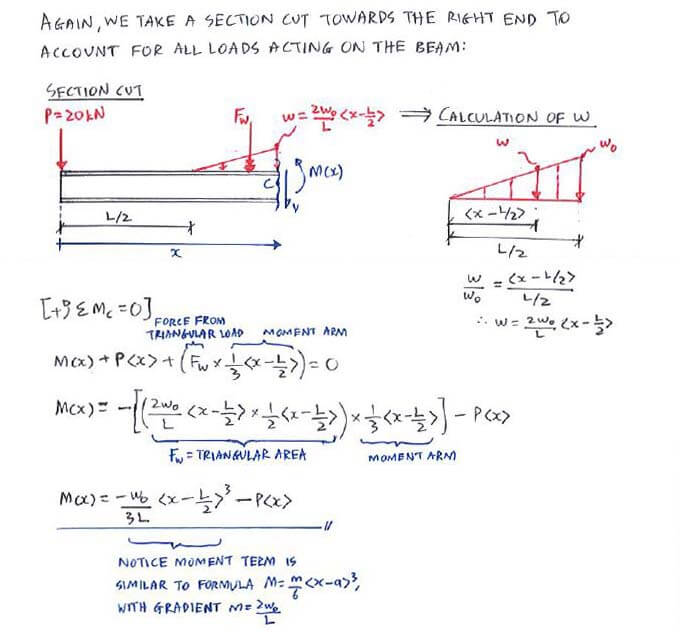 AGAIN, WE TAKE A SECTION CUT TOWARDS THE RIGHT END TO
ACCOUNT FOR ALL LOADS ACTING ON THE BEAM:
SECTION CUT
P=20kN
Fw
w=2w₀/L <x-L/2>
⟹ CALCULATION OF W
w
w₀
C
M(x)
V
L/2
x
<x-L/2>
L/2
w/w₀ = <x-L/2>/L/2
∴ w=2w₀/L <x-L/2>
[+↺ΣMc=0]
FORCE FROM
TRIANGULAR LOAD
MOMENT ARM
M(x)+P<x>+(Fw×1/3<x-L/2>)=0
M(x)=-[(2w₀/L <x-L/2>×1/2<x-L/2>)×1/3<x-L/2>]-P<x>
Fw=TRIANGULAR AREA
MOMENT ARM
M(x)=-w₀/3L <x-L/2>³-P<x>
NOTICE MOMENT TERM IS
SIMILAR TO FORMULA M=m/6<x-a>³,
WITH GRADIENT M=2w₀/L